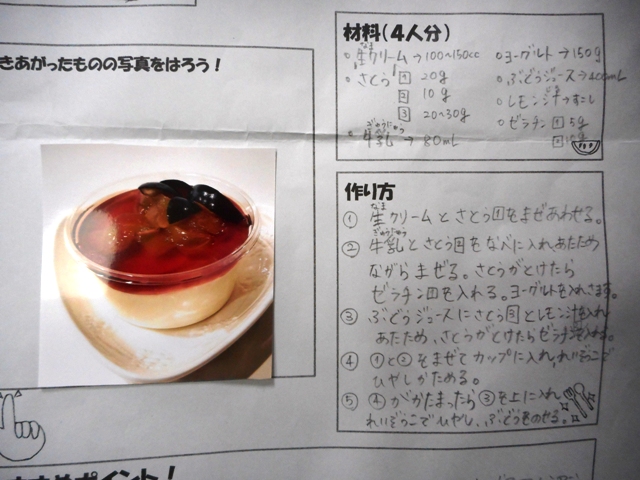 きあがったものの写真をはろう！
材料（4人分）
なま
○生クリーム→100～150cc
○さとう 1 20g
2 10g
3 20～30g
ぎゅうにゅう
○牛乳→80mL
○ヨーグルト→150g
○ぶどうジュース→400mL
○レモン汁→すこし
○ゼラチン 1 5g
作り方
なま
① 生クリームとさとう1をまぜあわせる。
ぎゅうにゅう
② 牛乳とさとう2をなべに入れ、あたため
ながらまぜる。さとうがとけたら
ゼラチン1を入れる。ヨーグルトを入れさます。
③ ぶどうジュースにさとう3とレモン汁を入れ
あたため、さとうがとけたらゼラチン2を入れる。
④ ①と②をまぜてカップに入れ、れいぞうこで
ひやしかためる。
⑤ ④がかたまったら③を上に入れ
れいぞうこでひやし、ぶどうをのせる。
すすめポイント！